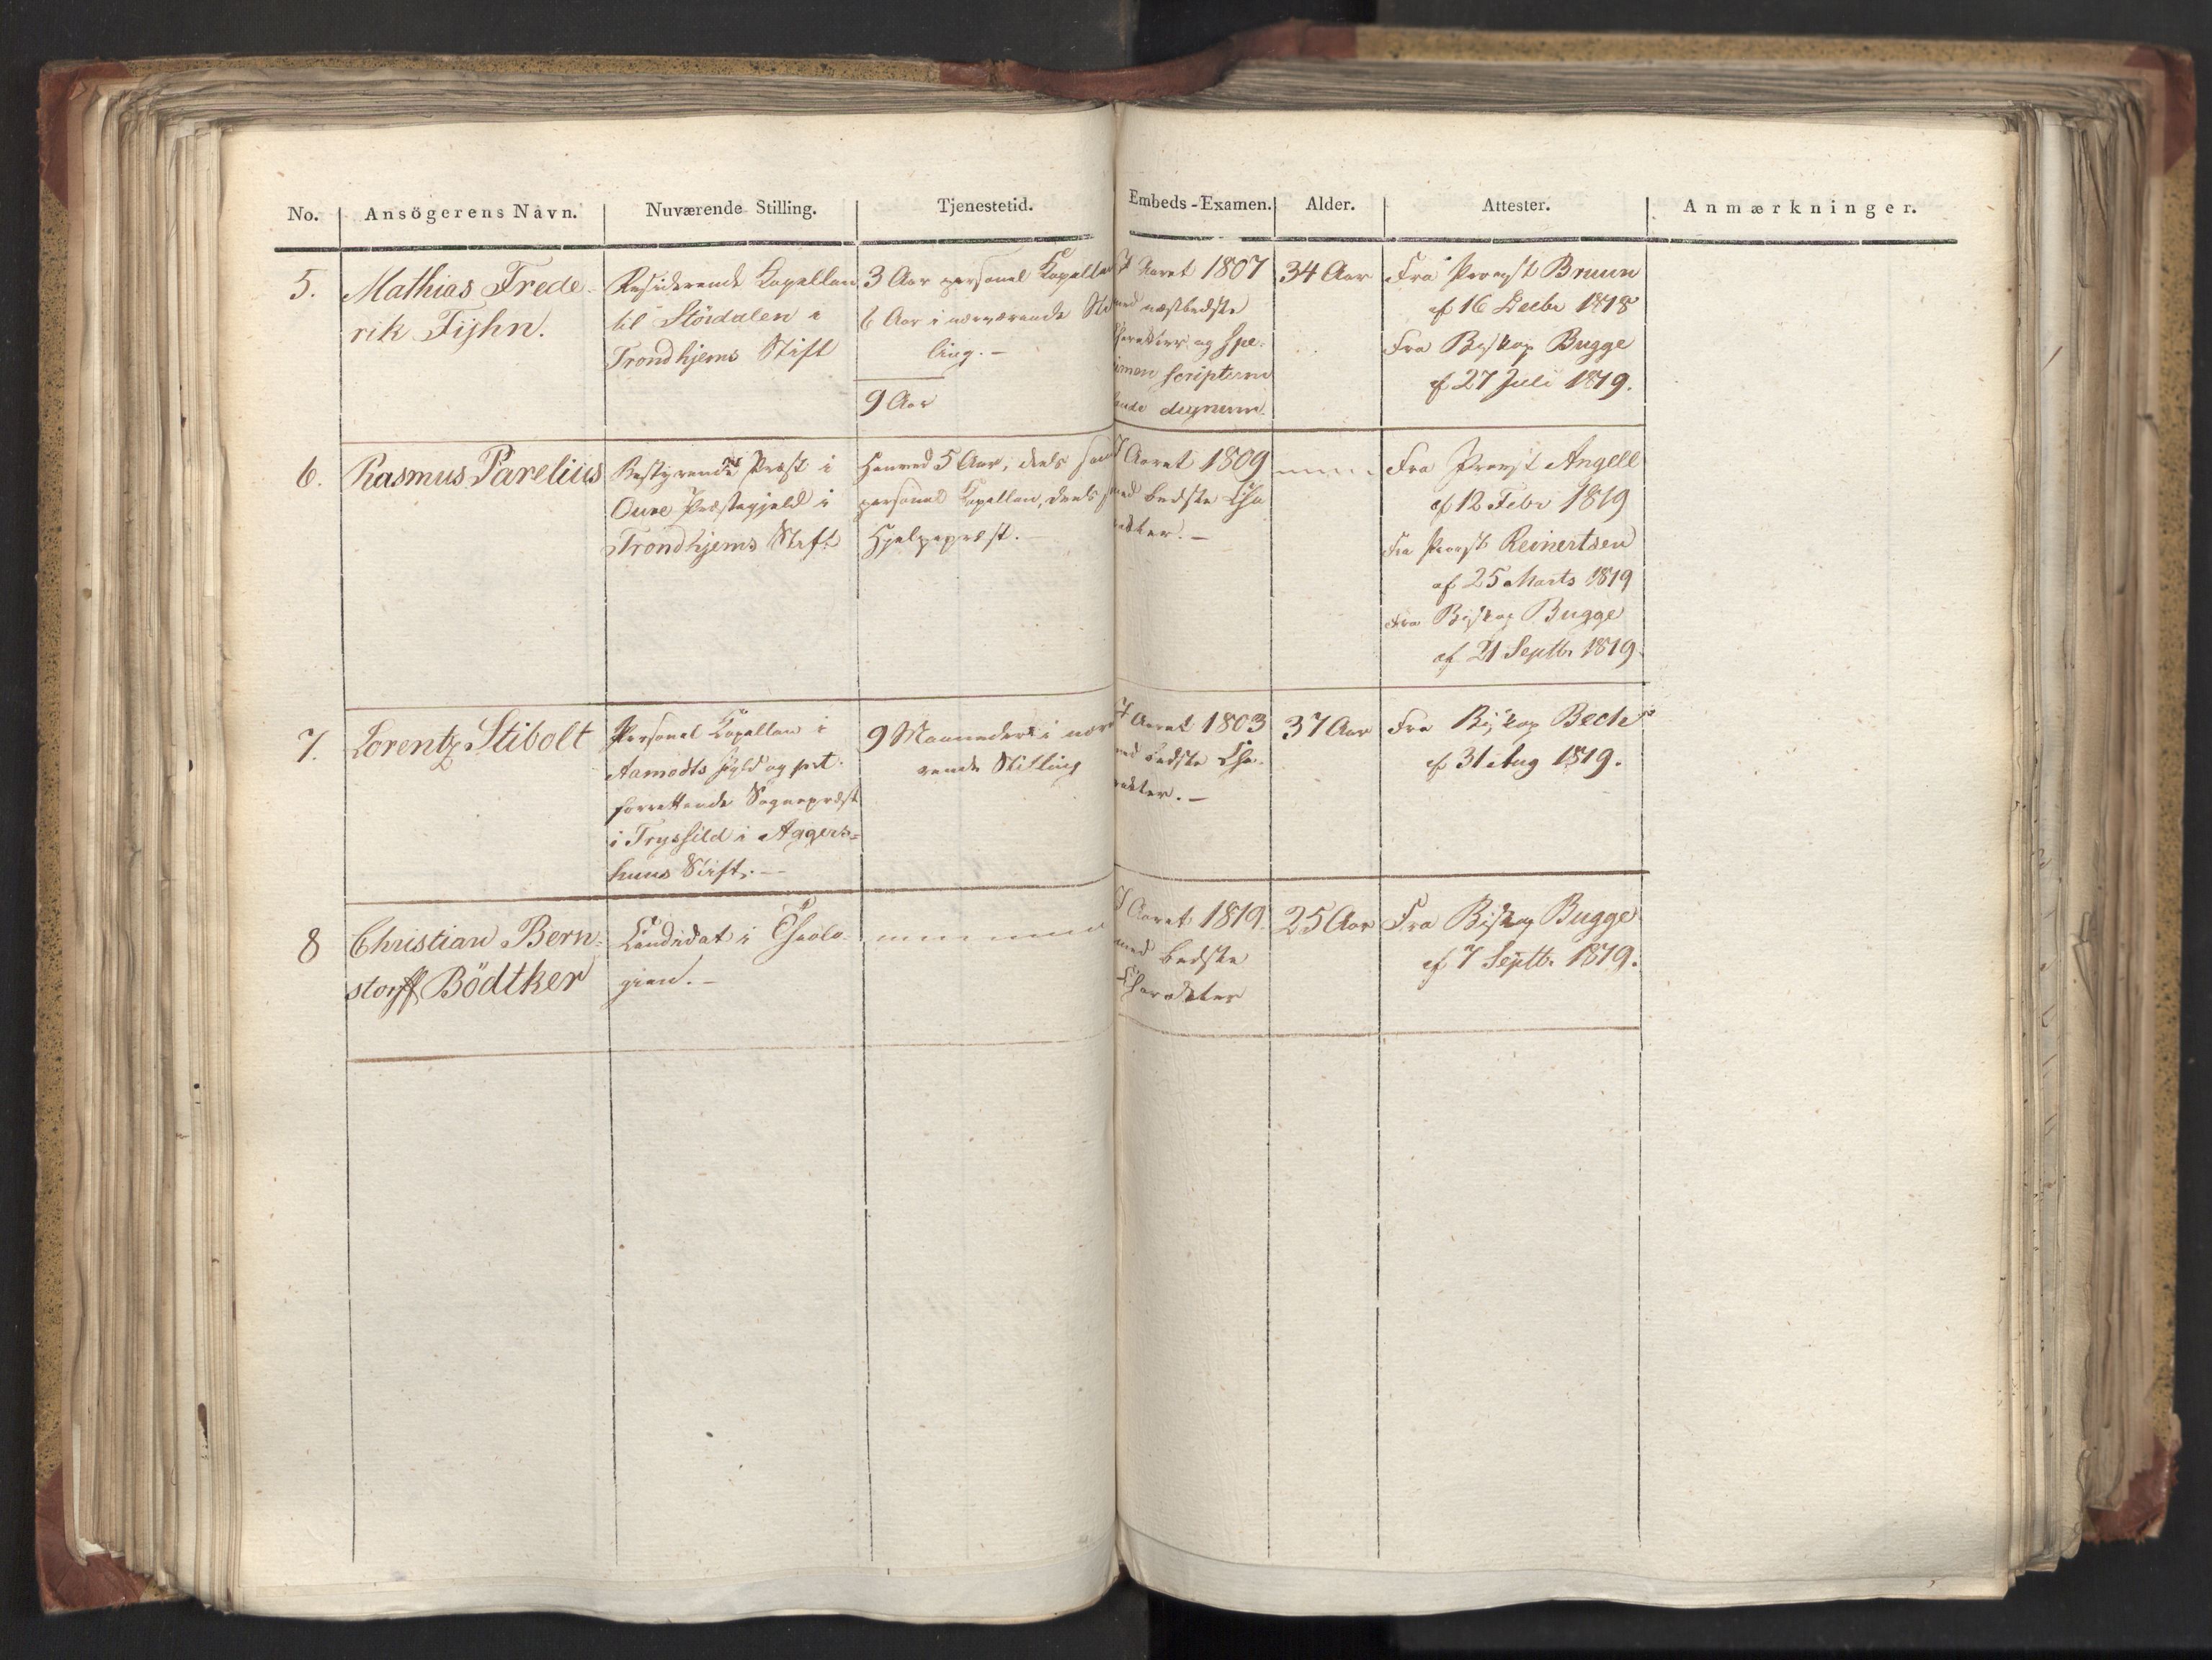 No. Ansögerens Navn. Nuværende Stilling. Tjenestetid. Embeds-Examen. Alder. Attester. Anmærkninger.
5. Mathias Frede-
rik Fijhn.
Residerende Kapellan
til Stördalen i
Trondhjems Stift
3 Aar personel Kapellan
6 Aar i nærværende Stil
ling. —
9 Aar
I Aaret 1807
med næstbedste
Charakteer og spe-
cimen scripterne
laude dignum.
34 Aar
Fra Provst Bruun
af 16 Decbr 1818
Fra Biskop Bugge
af 27 Juli 1819.
6. Rasmus Parelius
Bestyrende Præst i
Oure Præstegjeld i
Trondhjems Stift
Henved 5 Aar, deels som
personel Kapellan, deels
Hjelpepræst. —
I Aaret 1809
med bedste Cha
rakter. —
Fra Provst Angell
af 12 Febr 1819
Fra Provst Reinertsen
af 25 Marts 1819
Fra Biskop Bugge
af 21 Septbr 1819.
7. Lorentz Stibolt
Personel Kapellan i
Aamodts Gjeld og
forrettende Sognepræst
i Tryssild i Aggers-
huus Stift. —
9 Maaneder i nærvæ
rende Stilling
I Aaret 1803
med bedste Cha-
rakter. —
37 Aar
Fra Biskop Bech
af 31 Aug 1819.
8 Christian Bern-
storff Bödtker
Candidat i Theolo-
gien. —
I Aaret 1819
med bedste
Charakter
25 Aar
Fra Biskop Bugge
af 7 Septbr 1819.